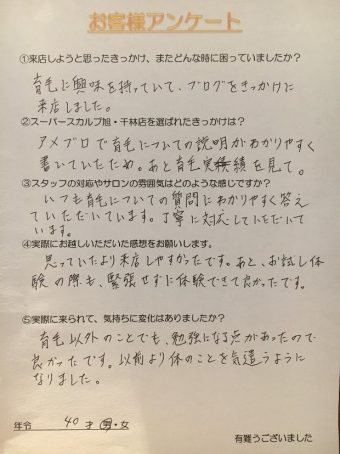 お客様アンケート
①来店しようと思ったきっかけ、またどんな時に困っていましたか？
育毛に興味を持っていて、ブログをきっかけに
来店しました。
②スーパースカルプ旭・千林店を選ばれたきっかけは？
アメブロで育毛についての説明がわかりやすく
書いていたため。あと育毛実績を見て。
③スタッフの対応やサロンの雰囲気はどのような感じですか？
いつも育毛についての質問にわかりやすく答え
ていただいています。丁寧に対応していただいて
います。
④実際にお越しいただいた感想をお願いします。
思っていたより来店しやすかったです。あと、お試し体
験の際も、緊張せずに体験できて良かったです。
⑤実際に来られて、気持ちに変化はありましたか？
育毛以外のことでも、勉強になる点があったので
良かったです。以前より体のことを気遣うように
なりました。
年令 40 才 男・女
有難うございました